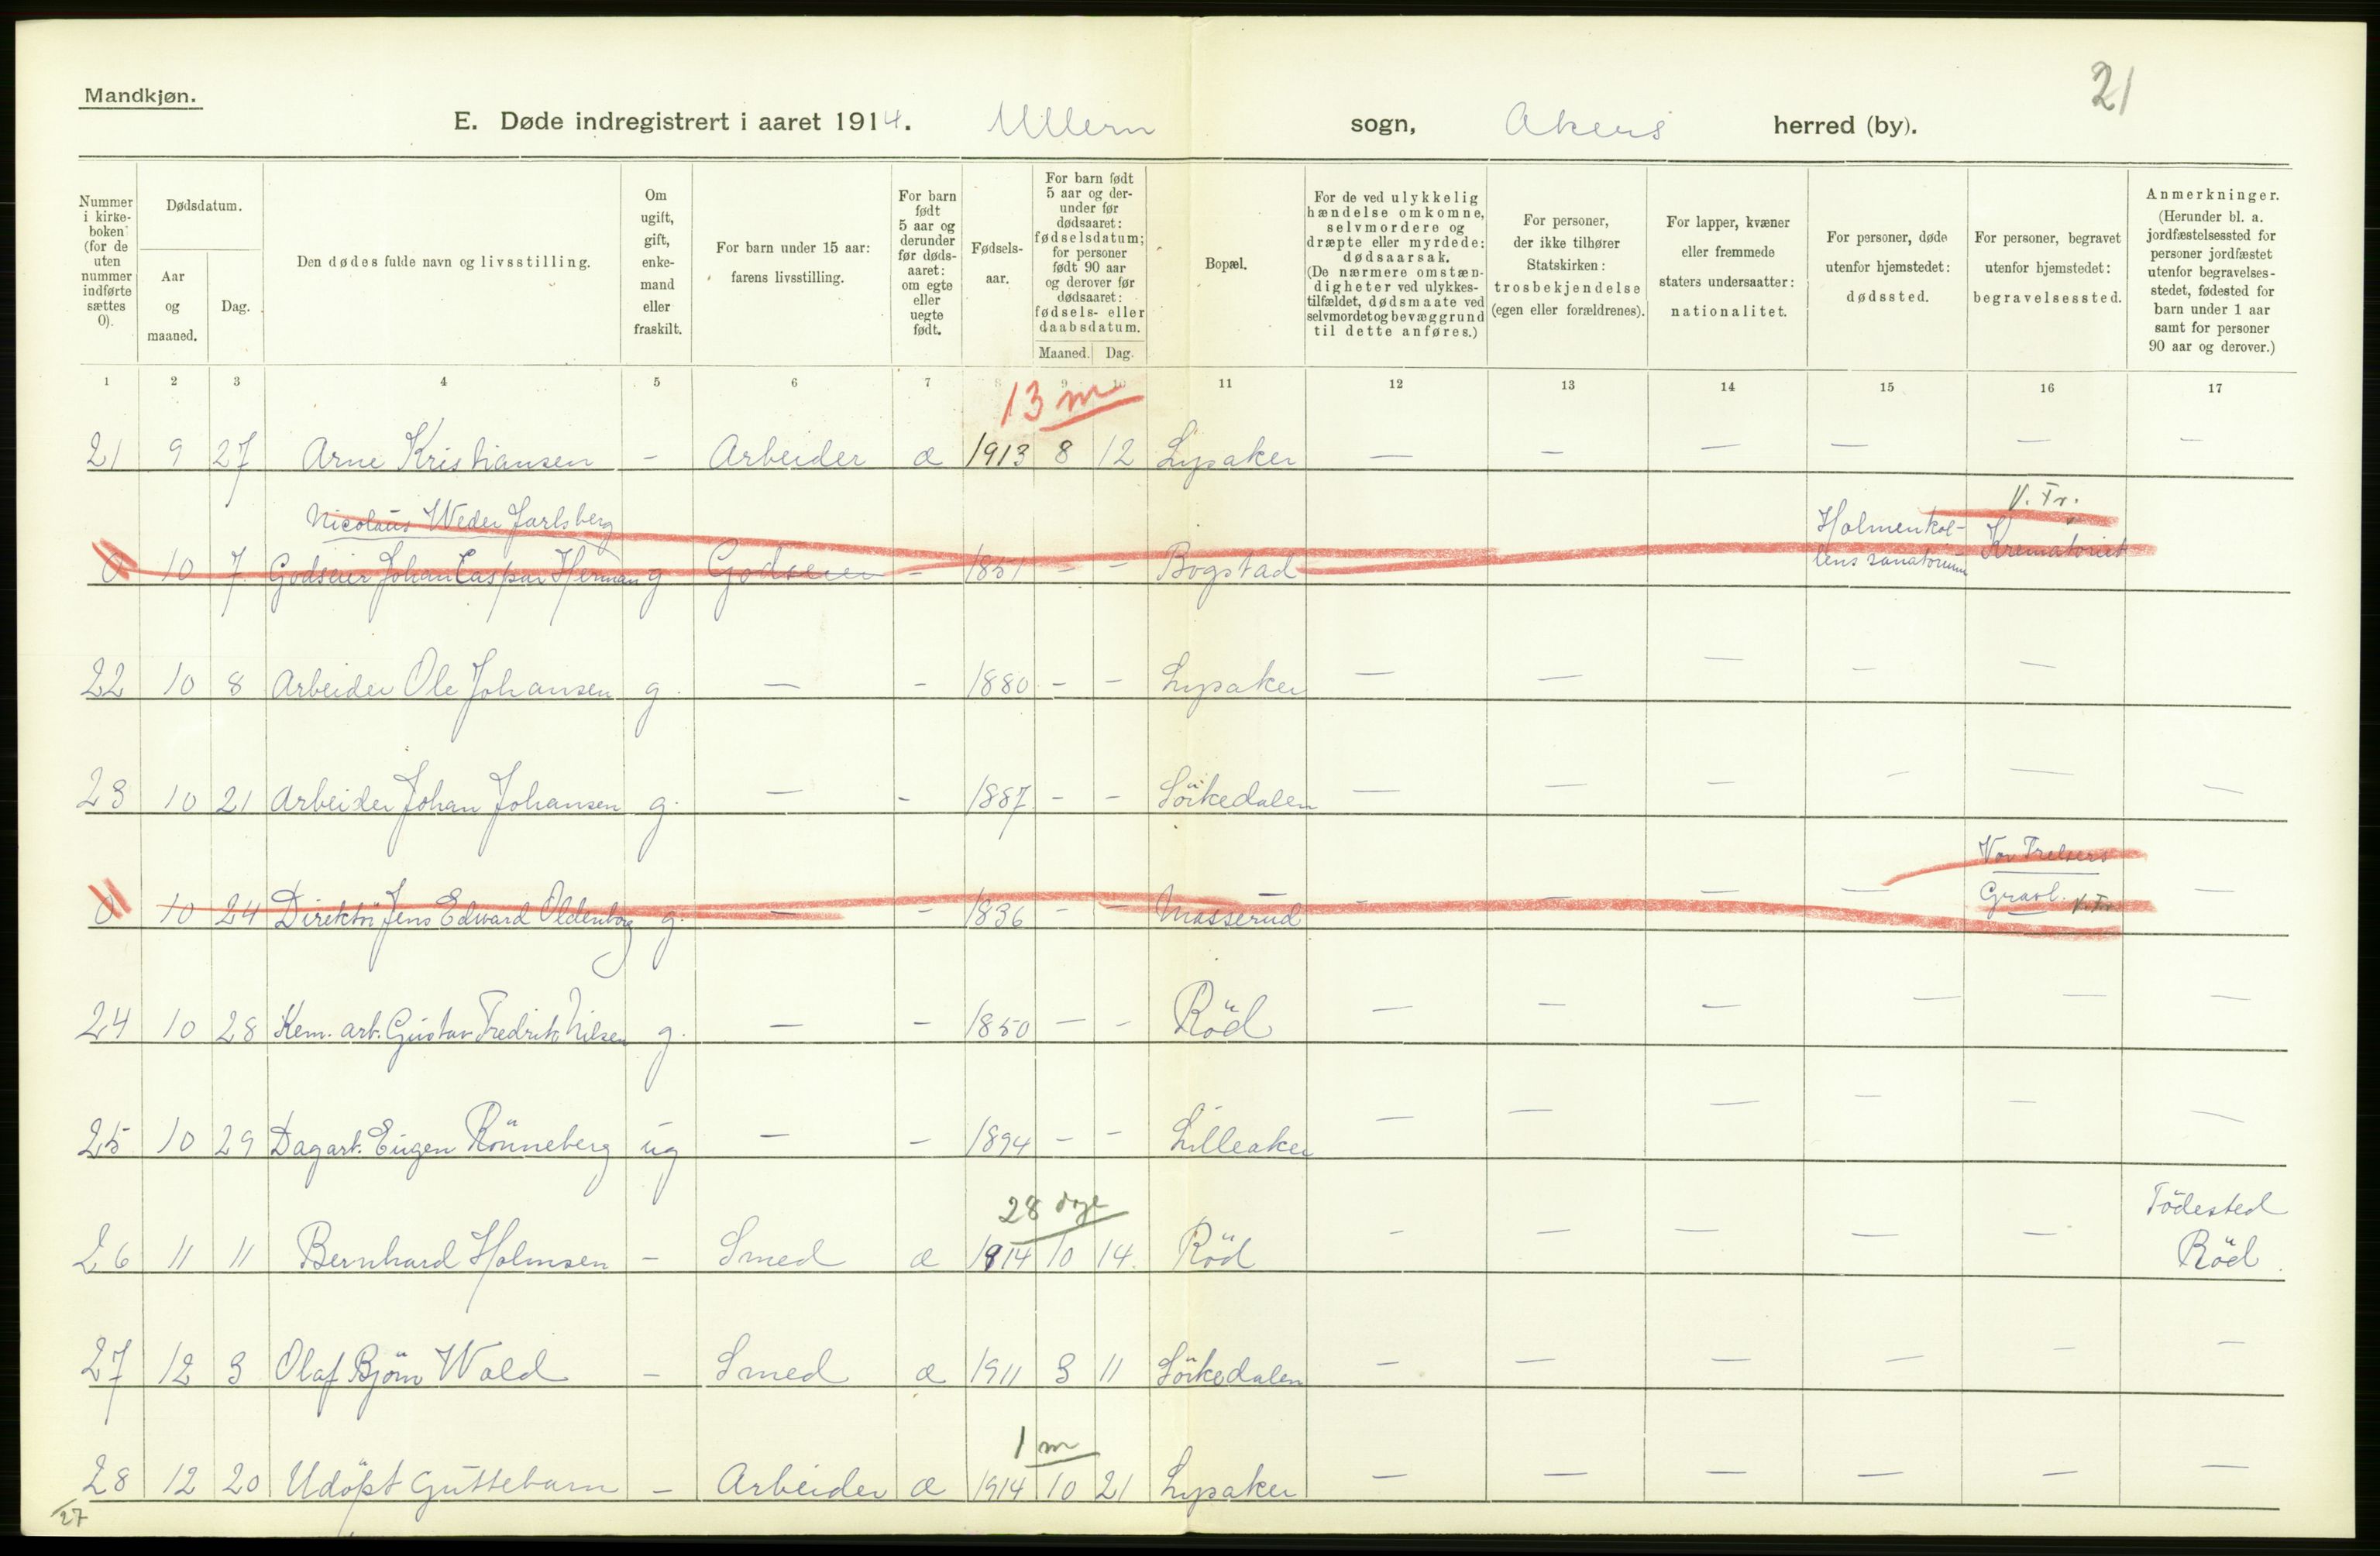 21
Mandkjøn.
E. Døde indregistrert i aaret 1914. Ullern sogn, Akers herred (by).
Nummer i kirkeboken (for de uten nummer indførte sættes 0).
Dødsdatum.
Aar og maaned.
Dag.
Den dødes fulde navn og livsstilling.
Om ugift, gift, enkemand eller fraskilt.
For barn under 15 aar: farens livsstilling.
For barn født 5 aar og derunder før dødsaaret: om egte eller uegte født.
Fødselsaar.
For barn født 5 aar og derunder før dødsaaret: fødselsdatum; for personer født 90 aar og derover før dødsaaret: fødsels- eller daabsdatum.
Maaned. Dag.
Bopæl.
For de ved ulykkelig hændelse omkomne, selvmordere og dræpte eller myrdede: dødsaarsak. (De nærmere omstændigheter ved ulykkestilfældet, dødsmaate ved selvmordet og bevæggrund til dette anføres.)
For personer, der ikke tilhører Statskirken: trosbekjendelse (egen eller forældrenes).
For lapper, kvæner eller fremmede staters undersaatter: nationalitet.
For personer, døde utenfor hjemstedet: dødssted.
For personer, begravet utenfor hjemstedet: begravelsessted.
Anmerkninger. (Herunder bl. a. jordfæstelsessted for personer jordfæstet utenfor begravelsesstedet, fødested for barn under 1 aar samt for personer 90 aar og derover.)
1 2 3 4 5 6 7 8 9 10 11 12 13 14 15 16 17
13 m
21 9 27 Arne Kristiansen - Arbeider æ 1913 8 12 Lysaker — — — — — —
Nicolaus Wedel Jarlsberg V. Tr.
0 10 7 Godseier Johan Caspar Herman g Godseier - 1851 - - Bogstad Holmenkollens sanatorium Krematoriet
22 10 8 Arbeider Ole Johansen g. — - 1880 - - Lysaker — — — — —
23 10 21 Arbeider Johan Johansen g. — - 1887 - - Sörkedalen — — — — — —
Vor Frelsers
0 10 24 Direktör Jens Edward Oldenborg g. — - 1836 - - Masserud - — — — Gravl. V. Fr. —
24 10 28 Kem. arb. Gustav Fredrik Nilsen g. — - 1850 - - Röd — — — — — —
25 10 29 Dagarb. Eugen Rönneberg ug — - 1894 - - Lilleaker — — — — — —
28 dage
26 11 11 Bernhard Holmsen - Smed æ 1914 10 14. Röd - — — — — Födested Röd.
27 12 3 Olaf Björn Wold - Smed æ 1911 3 11 Sörkedalen — — — — — —
1 m
28 12 20 Udöpt Guttebarn - Arbeider æ 1914 10 21 Lysaker — — — — — —
/27